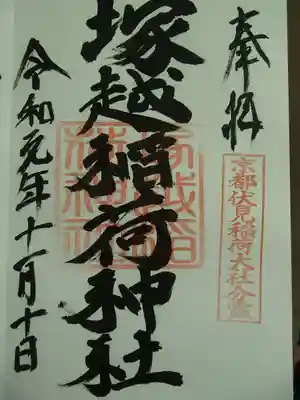 奉拝
京都伏見稲荷大社分霊
塚越稲荷神社
令和元年十一月十日